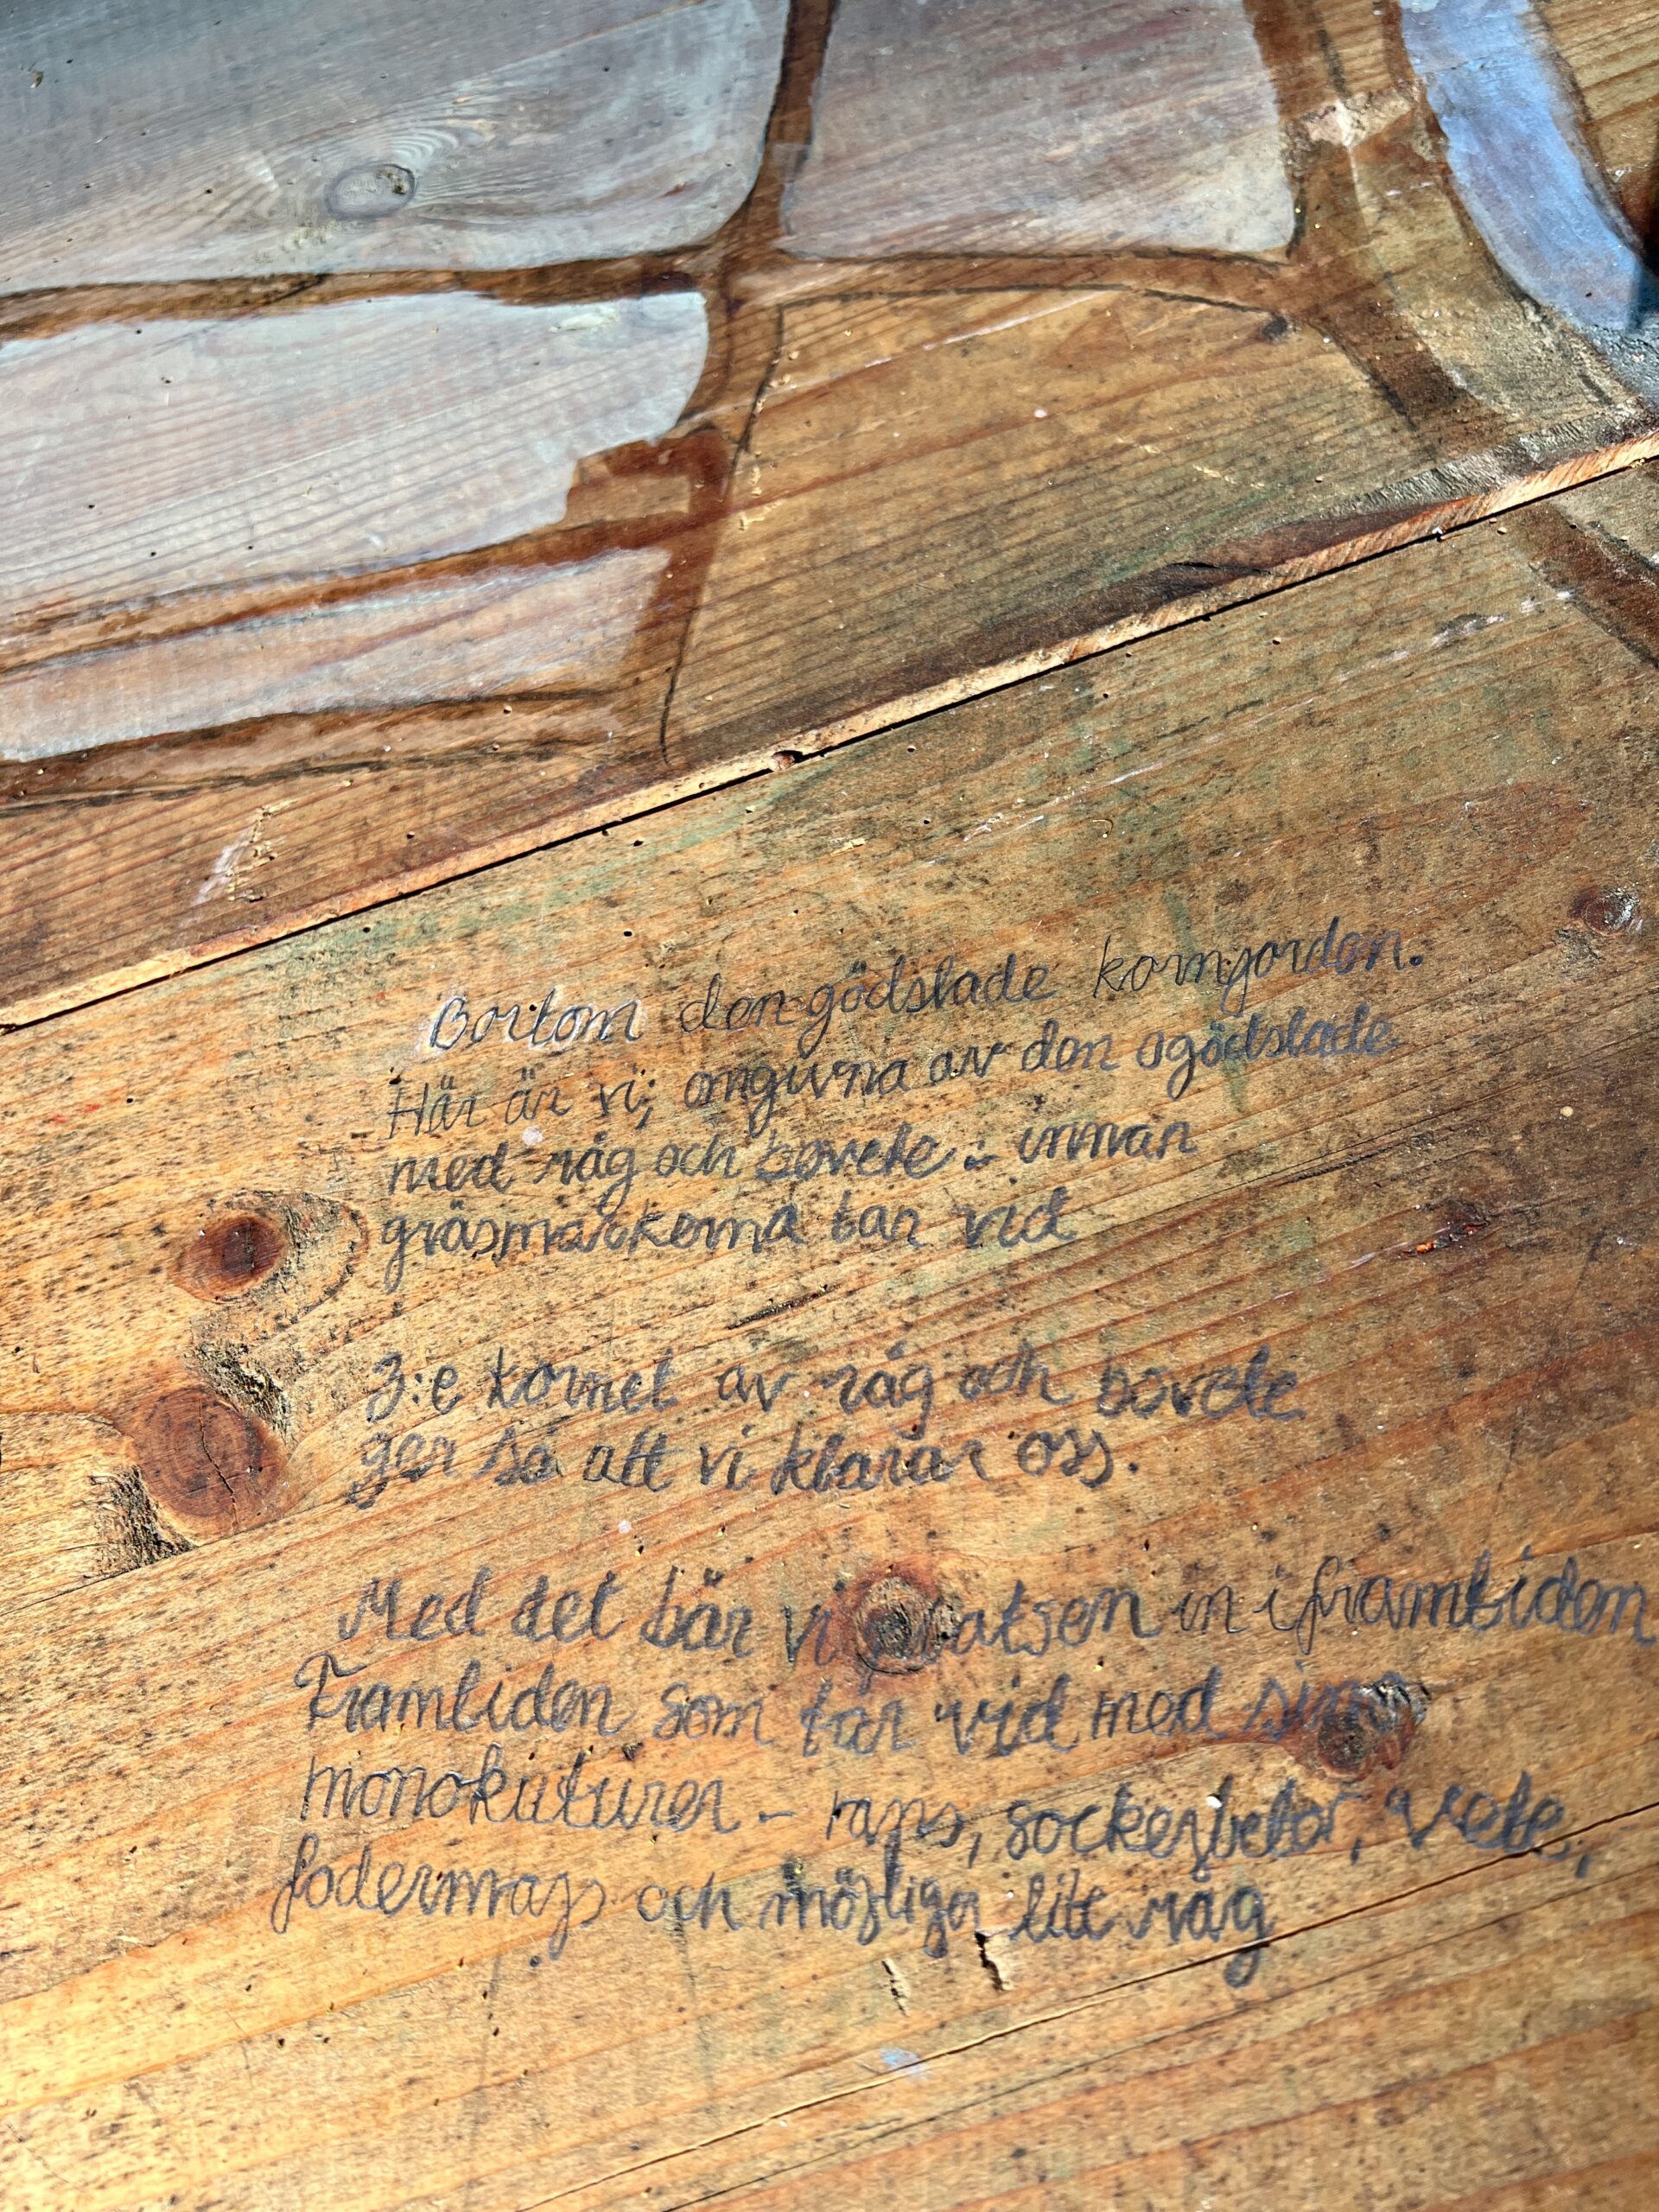 Bortom den gödslade kornjorden.
Här är vi; omgivna av den ogödslade
med råg och bovete - innan
gräsmarkerna tar vid
3:e kornet av råg och bovete
ger så att vi klarar oss.
Med det bär vi in i framtiden
Framtiden som tar vid med sina
monokulturer - raps, sockerbetor, vete,
fodermajs och möjligen lite råg